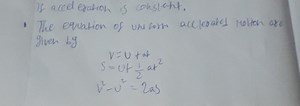 If acceleration is constant.
• The equation of uniform accelerated motion are
given by
V=U+at
S=Ut+½at²
V²-U²=2as